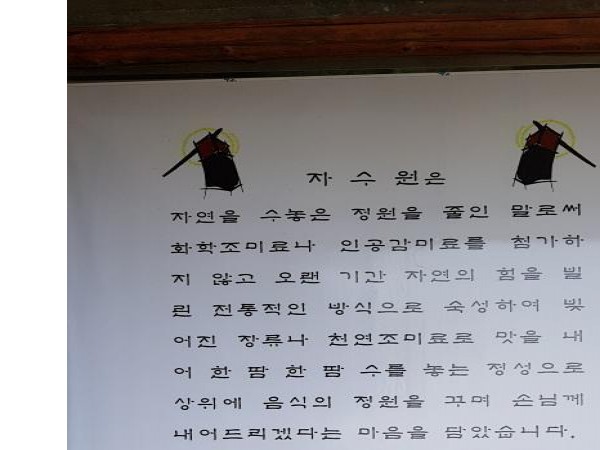 자 수 원은
자연을 수놓은 정원을 줄인 말로써
화학조미료나 인공감미료를 첨가하
지 않고 오랜 기간 자연의 힘을 빌
린 전통적인 방식으로 숙성하여 빚
어진 장류나 천연조미료로 맛을 내
어 한 땀 한 땀 수를 놓는 정성으로
상위에 음식의 정원을 꾸며 손님께
내어드리겠다는 마음을 담았습니다.